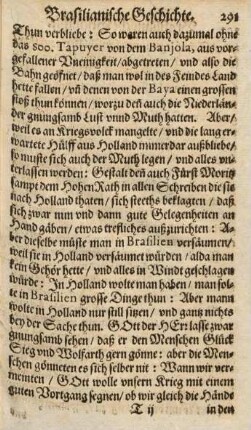 Brasilianische Geschichte. 291
Thun verbliebe: So waren auch dazumal ohne
das 500. Tapuyer von dem Banjola, aus vor-
gefallener Vneinigkeit/abgetreten/ vnd also die
Bahn geöfnet/ daß man wol in des Feindes Land
hette fallen/ vñ denen von der Baya einen grossen
stoß thun können/ worzu deñ auch die Niederlän-
der gnungsamb Lust vnnd Muth hatten. Aber/
weil es an Kriegsvolck mangelte/ vnd die lang er-
wartete Hülff aus Holland immerdar außbliebe/
so muste sich auch der Muth legen/ vnd alles vn-
terlassen werden: Gestalt deñ auch Fürst Moritz
sampt dem Hohen Rath in allen Schreiben die sie
nach Holland thaten/ sich steeths beklagten/ daß
sich zwar nun vnd dann gute Gelegenheiten an
Hand gäben/ etwas treffliches außzurichten: A-
ber dieselbe müste man in Brasilien versäumen/
weil sie in Holland versäumet würden/ alda man
kein Gehör hette/ vnd alles in Windt geschlagen
würde: In Holland wolte man haben/ man sol-
te in Brasilien grosse Dinge thun: Aber mann
wolte in Holland nur still sitzen/ vnd gantz nichts
bey der Sache thun. GOtt der HErr lasse zwar
gnungsamb sehen/ daß er den Menschen Glück
Sieg vnd Wolfarth gern gönne: aber die Men-
schen gönneten es sich selber nit: Wann wir ver-
meinten/ GOtt wolle vnsern Krieg mit einem
guten Vortgang segnen/ ob wir gleich die Hände
T ij in den